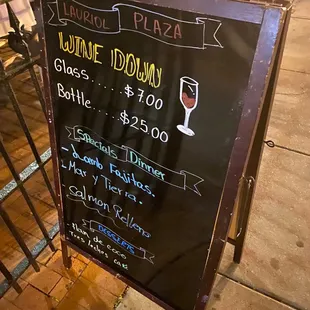 LAURIOL PLAZA
WINE DOWN
Glass.....$7.00
Bottle.....$25.00
Specials Dinner
- Lomo Fajitas.
- Mar y Tierra.
- Salmon Relleno
DESSERTS
- Flan de coco
- Tres leches